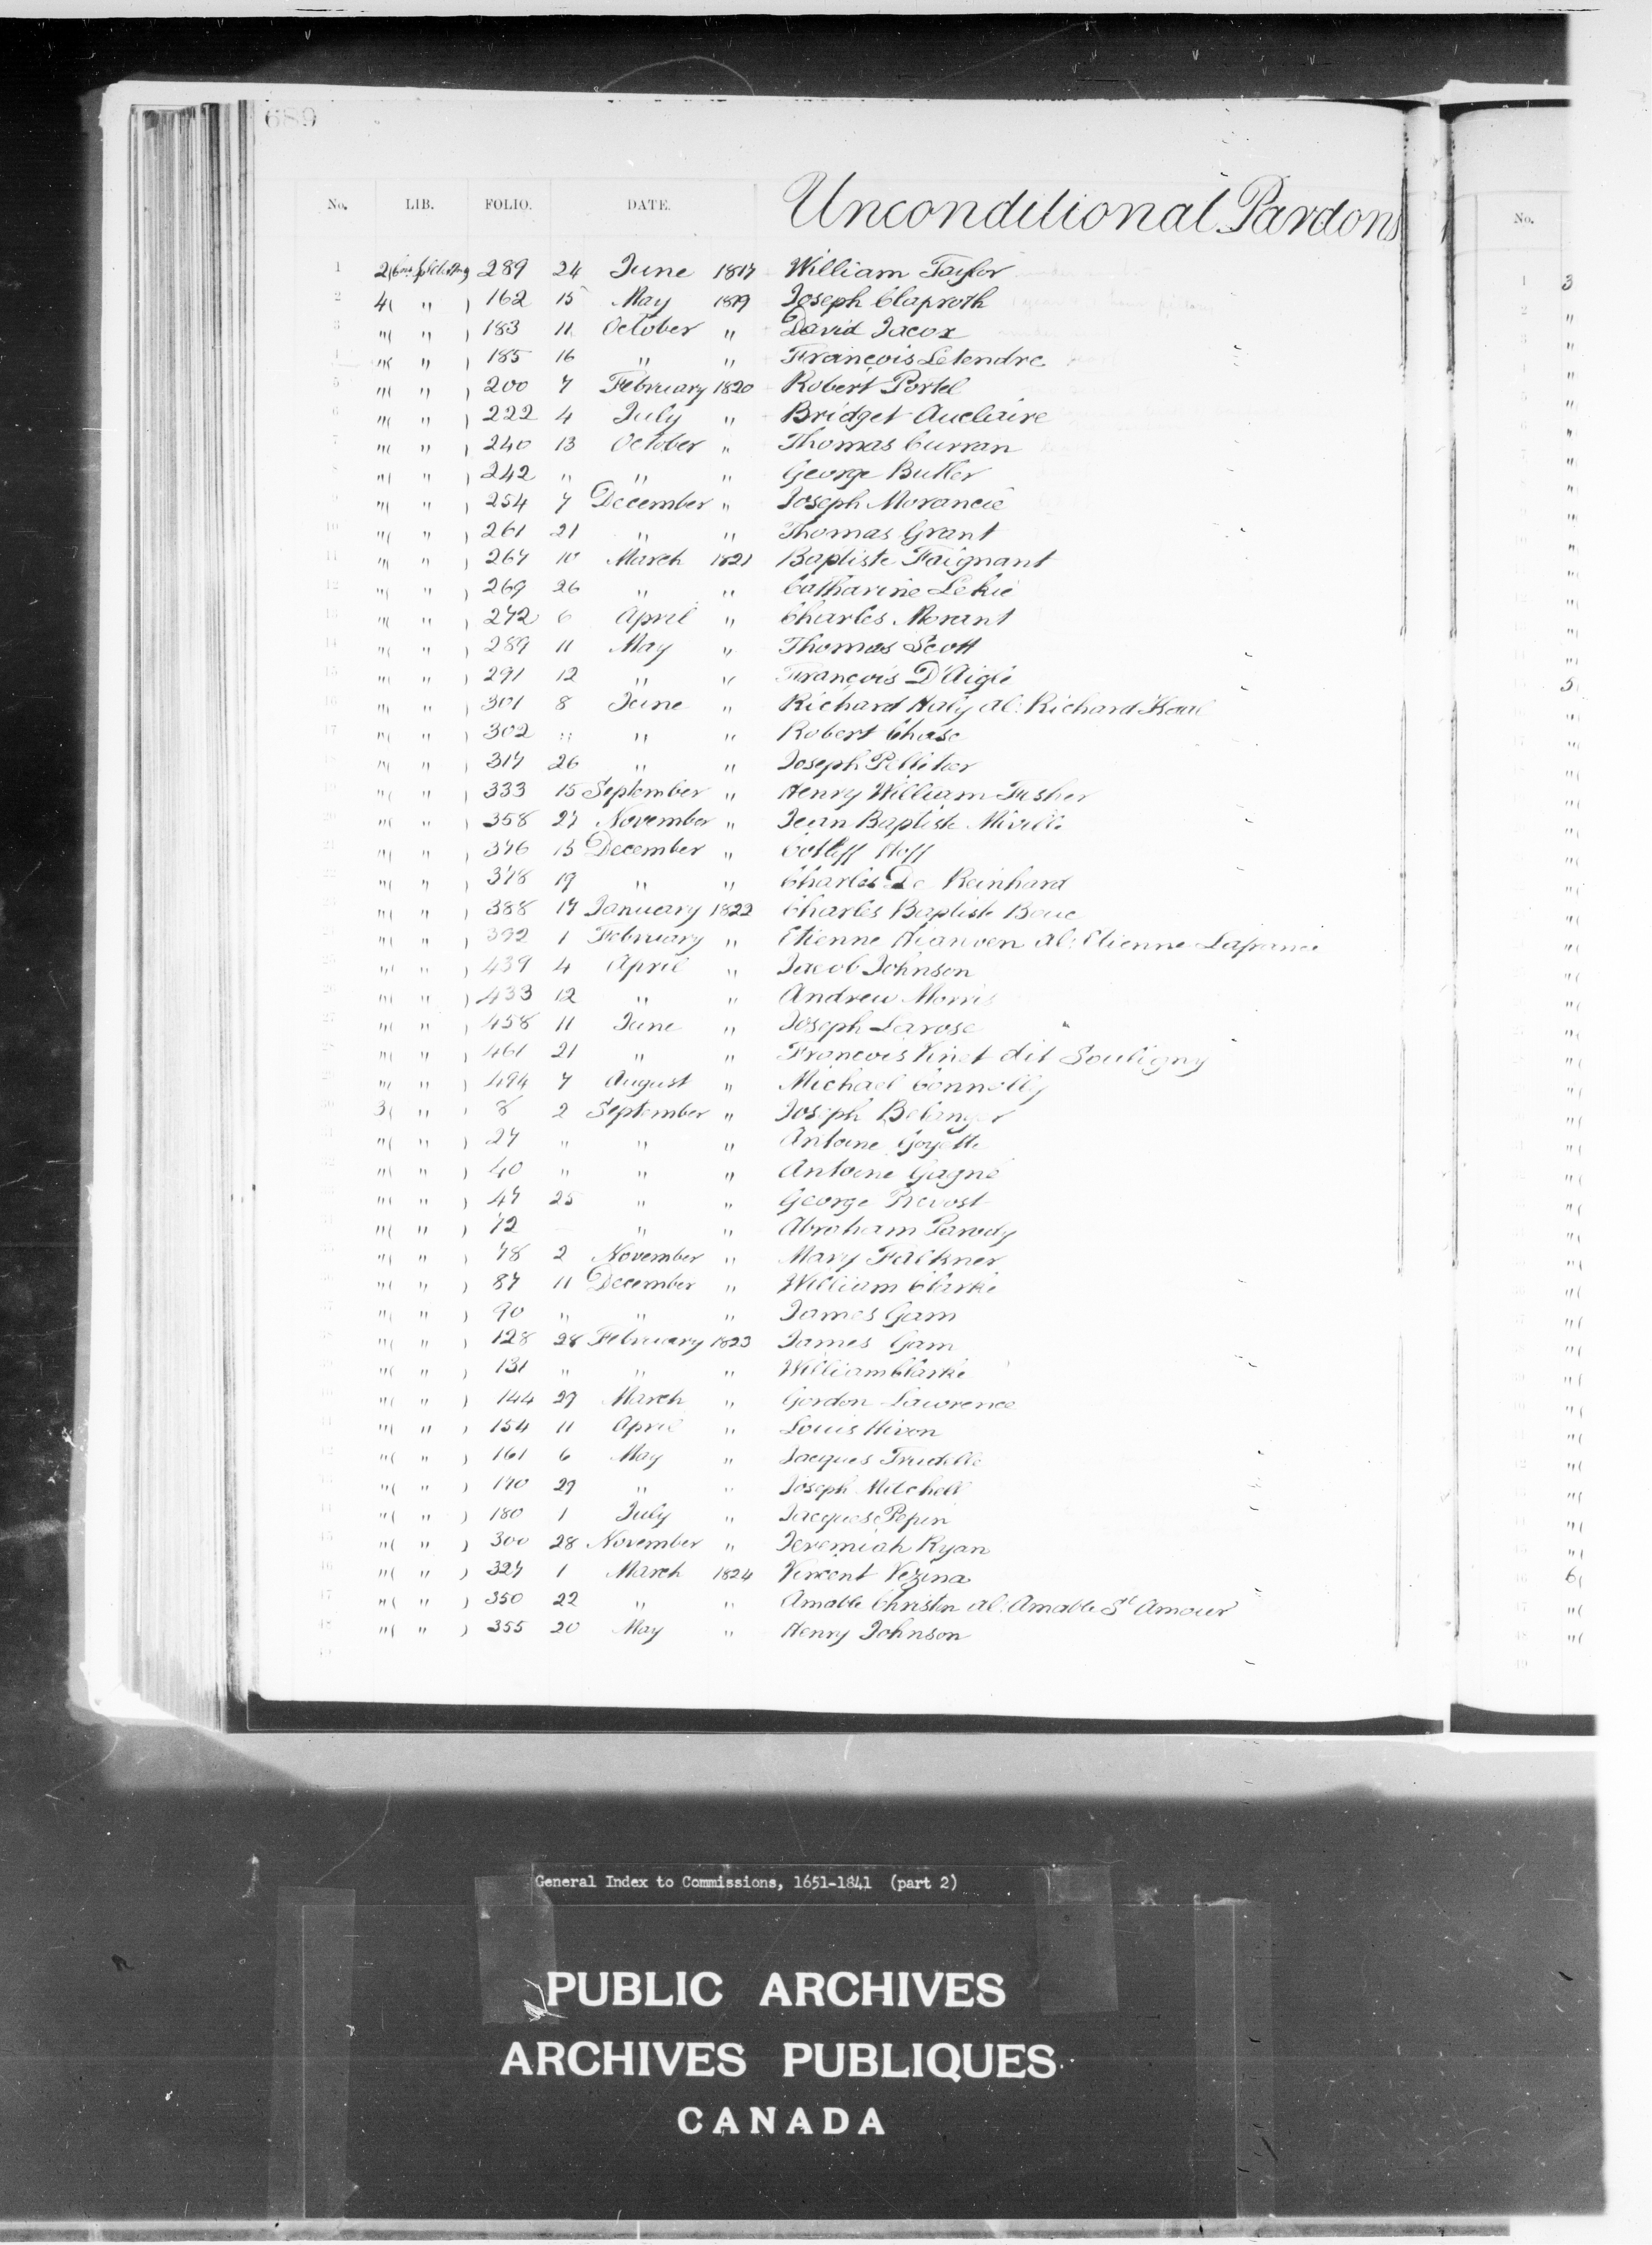 689
No. LIB. FOLIO. DATE. Unconditional Pardons No.
1 2( ) 289 24 June 1817 William Taylor 1 3
2 4( " ) 162 15 May 1819 Joseph Claproth 2 "
3 "( " ) 183 11 October " David Jacox "
"( " ) 185 16 " " François Letendre "
5 "( " ) 200 7 February 1820 Robert Portel "
6 "( " ) 222 4 July " Bridget Auclaire "
7 "( " ) 240 13 October " Thomas Curran "
8 "( " ) 242 " " " George Butler "
9 "( " ) 254 7 December " Joseph Morancie "
10 "( " ) 261 21 " " Thomas Grant "
11 "( " ) 267 10 March 1821 Baptiste Faignant "
12 "( " ) 269 26 " " Catharine Lekie "
13 "( " ) 272 6 April " Charles Morant "
14 "( " ) 289 11 May " Thomas Scott "
15 "( " ) 291 12 " " François D'Aigle 5
16 "( " ) 301 8 June " Richard Haly al: Richard "
17 "( " ) 302 " " " Robert Chase "
"( " ) 317 26 " " Joseph "
"( " ) 333 15 September " Henry William Fisher "
"( " ) 358 27 November " Jean Baptiste "
"( " ) 376 13 December " Hoff "
"( " ) 378 19 " " Charles De Reinhard "
"( " ) 388 17 January 1822 Charles Baptiste Bouc "
"( " ) 392 1 February " Etienne al: Etienne "
"( " ) 439 4 April " Jacob Johnson "
"( " ) 433 12 " " Andrew Morris "
"( " ) 458 11 June " Joseph Larose "
"( " ) 461 21 " " François Vinet dit Souligny "
"( " ) 494 7 August " Michael Connolly "
3( " ) 8 2 September " Joseph Belanger "
"( " ) 27 " " " Antoine Goyette "
"( " ) 40 " " " Antoine Gagné "
"( " ) 47 25 " " George Prevost "
"( " ) 72 — " " Abraham Parody "
"( " ) 78 2 November " Mary Falkner "
"( " ) 87 11 December " William Clarke "
"( " ) 90 " " " James Gam "
"( " ) 128 28 February 1823 James Gam "
"( " ) 131 " " " William Clarke "
"( " ) 144 29 March " Gordon Lawrence "(
"( " ) 154 11 April " Louis Hivon "(
"( " ) 161 6 May " Jacques Trudelle "(
"( " ) 170 29 " " Joseph Mitchell "(
"( " ) 180 1 July " Jacques Pepin "(
"( " ) 300 28 November " Jeremiah Ryan "(
16 "( " ) 327 1 March 1824 Vincent Vezina 6(
17 "( " ) 350 22 " " Amable Christin al. Amable St Amour "(
18 "( " ) 355 20 May " Henry Johnson "(
General Index to Commissions, 1651-1841 (part 2)
PUBLIC ARCHIVES
ARCHIVES PUBLIQUES
CANADA